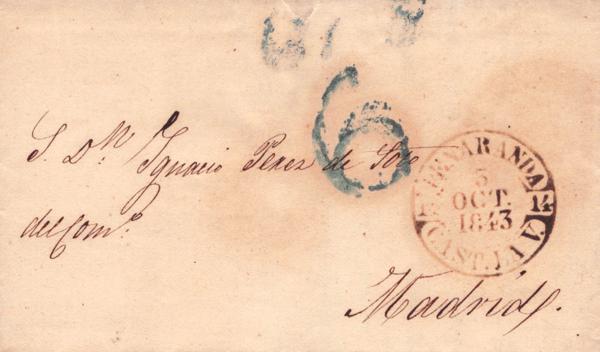 6
S. Dn Ignacio Perez de Soto
del Com.o
PEÑARANDA
5
OCT.
1843
14
CAST. LA V.
Madrid.